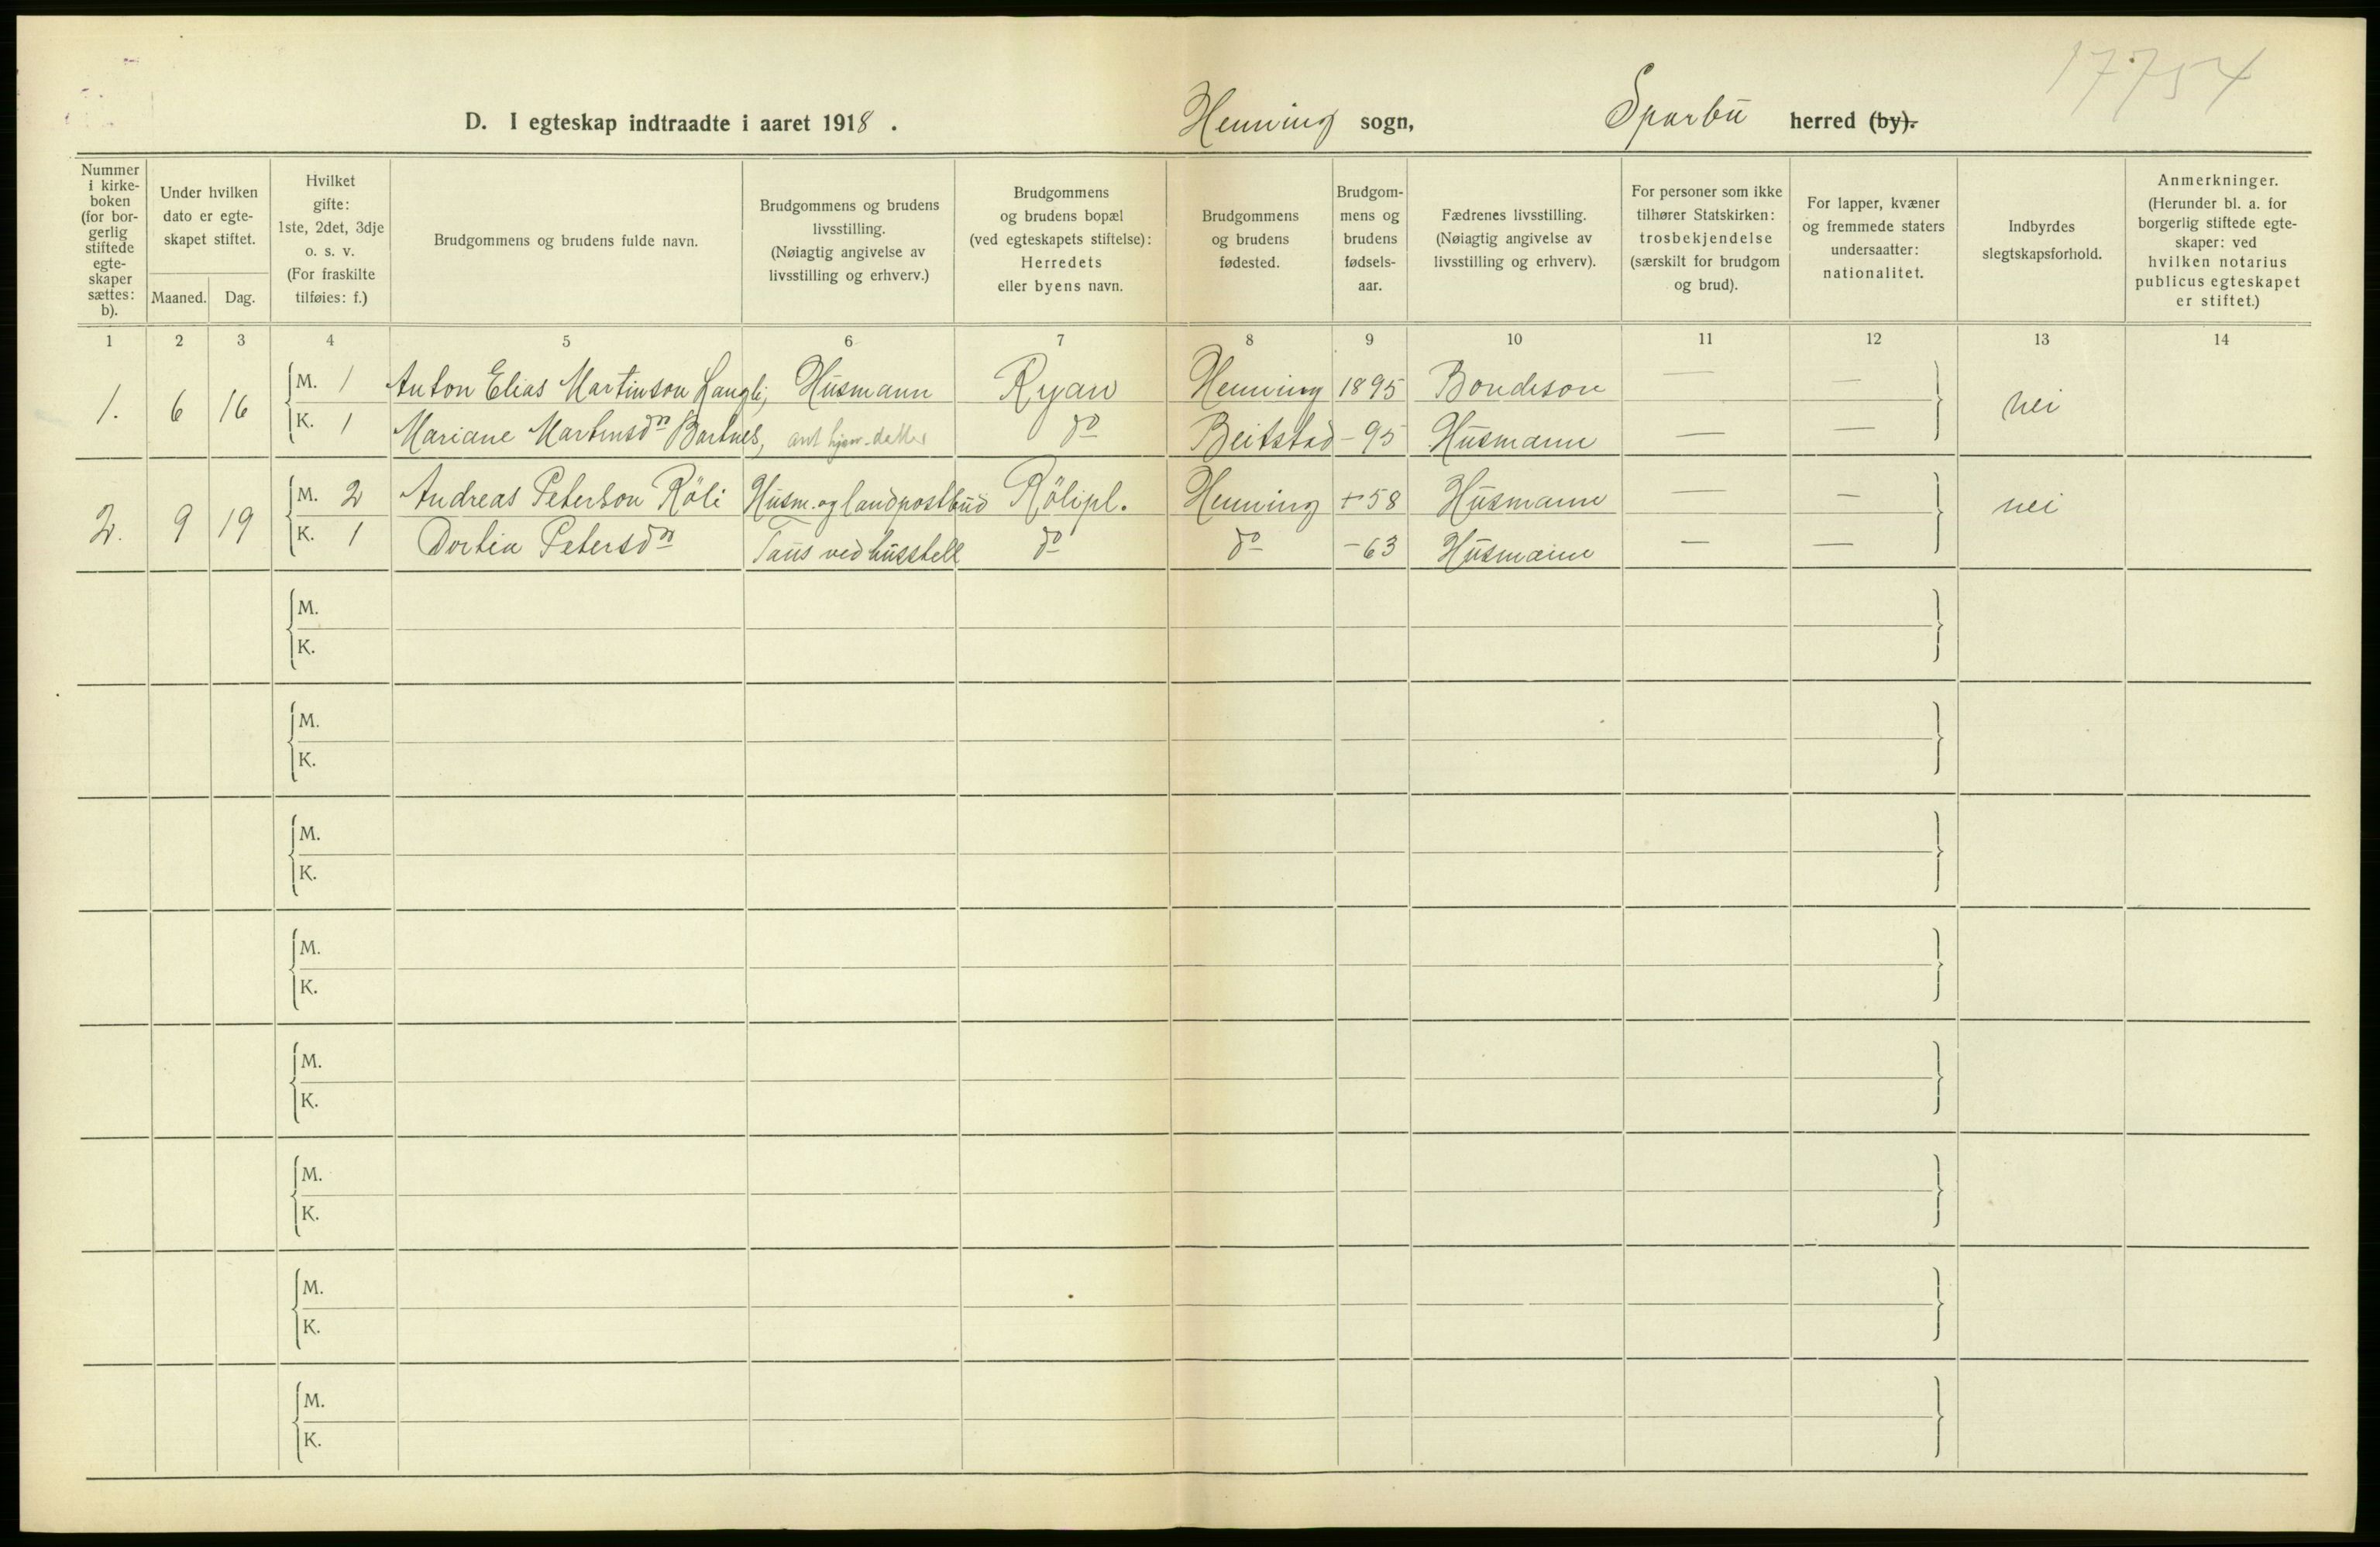 17754
D. I egteskap indtraadte i aaret 1918.
Henning sogn,
Sparbu herred (by).
Nummer i kirkeboken (for borgerlig stiftede egteskaper sættes: b).
Under hvilken dato er egteskapet stiftet.
Maaned. Dag.
Hvilket gifte: 1ste, 2det, 3dje o. s. v. (For fraskilte tilføies: f.)
Brudgommens og brudens fulde navn.
Brudgommens og brudens livsstilling. (Nøiagtig angivelse av livsstilling og erhverv.)
Brudgommens og brudens bopæl (ved egteskapets stiftelse): Herredets eller byens navn.
Brudgommens og brudens fødested.
Brudgommens og brudens fødselsaar.
Fædrenes livsstilling. (Nøiagtig angivelse av livsstilling og erhverv).
For personer som ikke tilhører Statskirken: trosbekjendelse (særskilt for brudgom og brud).
For lapper, kvæner og fremmede staters undersaatter: nationalitet.
Indbyrdes slegtskapsforhold.
Anmerkninger. (Herunder bl. a. for borgerlig stiftede egteskaper: ved hvilken notarius publicus egteskapet er stiftet.)
1 2 3 4 5 6 7 8 9 10 11 12 13 14
1. 6 16 M. 1 Anton Elias Martinson Langli, Husmann Ryan Henning 1895 Bondeson — — nei
K. 1 Mariane Martinsdn Bartnes, do Beitstad - 95 Husmann — —
2. 9 19 M. 2 Andreas Peterson Röli Husm. og landpostbud Rölipl. Henning + 58 Husmann — — nei
K. 1 Dortea Petersdn Taus ved husstell do do - 63 Husmann — —
M.
K.
M.
K.
M.
K.
M.
K.
M.
K.
M.
K.
M.
K.
M.
K.